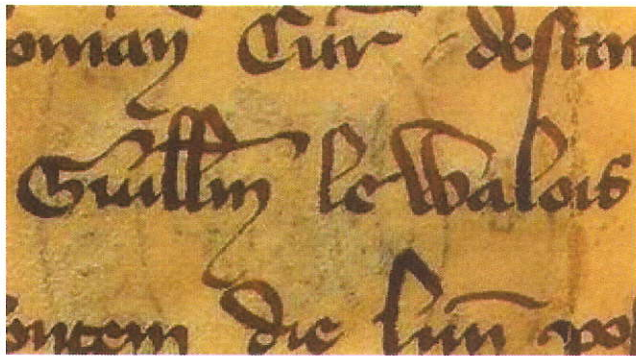 oman Cur̄ destin
Guill̄m le Walois
ontem die lun̄ po